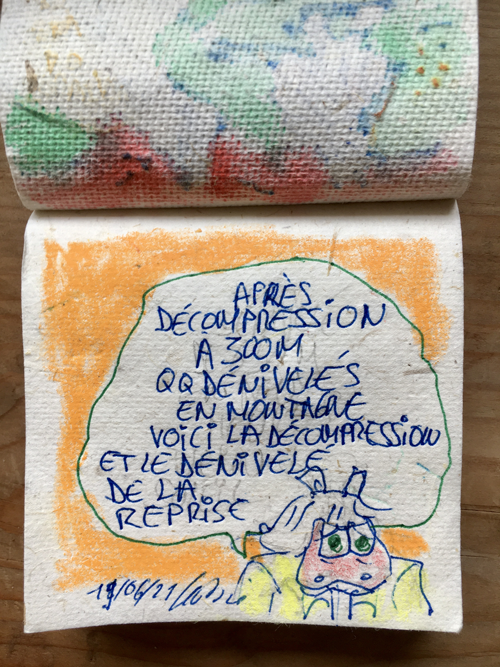 APRÈS
DÉCOMPRESSION
A 300M
QQ DÉNIVELÉS
EN MONTAGNE
VOICI LA DÉCOMPRESSION
ET LE DÉNIVELÉ
DE LA
REPRISE
19/06/21